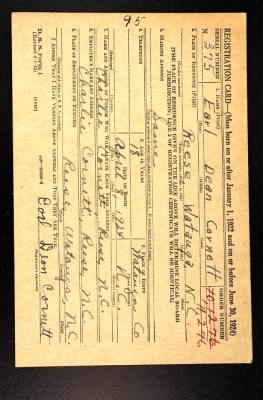 95
REGISTRATION CARD—(Men born on or after January 1, 1922 and on or before June 30, 1924)
SERIAL NUMBER 1. NAME (Print) ORDER NUMBER
N 375 Earl Dean Cornett 11,246
2. PLACE OF RESIDENCE (Print)
Reese Watauga N.C.
(THE PLACE OF RESIDENCE GIVEN ON THE LINE ABOVE WILL DETERMINE LOCAL BOARD
JURISDICTION; LINE 2 OF REGISTRATION CERTIFICATE WILL BE IDENTICAL)
3. MAILING ADDRESS
Same
4. TELEPHONE 5. AGE IN YEARS 6. PLACE OF BIRTH
18 Watauga Co
DATE OF BIRTH
April 3, 1924 N.C.
7. NAME AND ADDRESS OF PERSON WHO WILL ALWAYS KNOW YOUR ADDRESS
Charlie Cornett Reese, N.C.
8. EMPLOYER'S NAME AND ADDRESS
Charlie Cornett, Reese, N.C.
9. PLACE OF EMPLOYMENT OR BUSINESS
Reese, Watauga, N.C.
I AFFIRM THAT I HAVE VERIFIED ABOVE ANSWERS AND THAT THEY ARE TRUE.
D. S. S. Form 1 (over)
Earl Dean Cornett